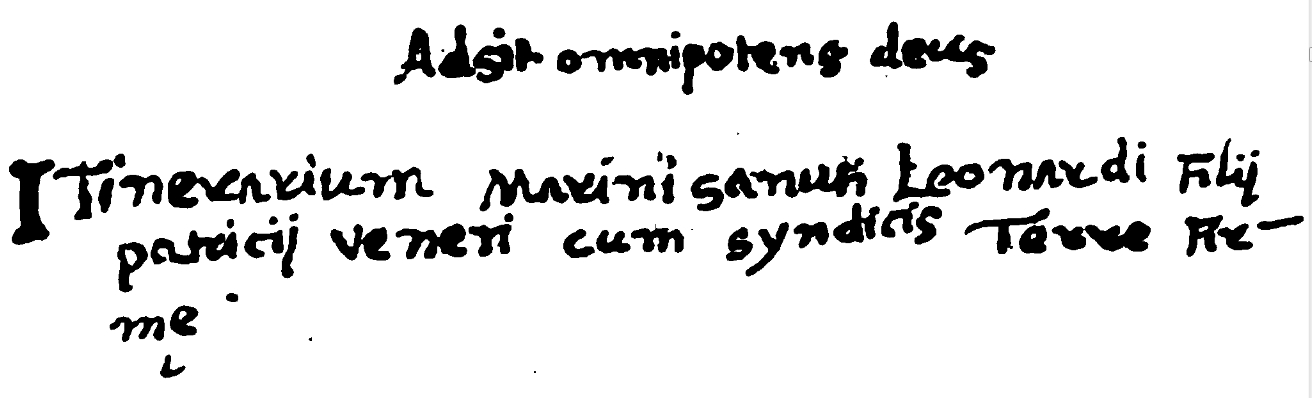 Adsit omnipotens deus
ITinerarium Marini sanuti Leonardi Filij
patricij veneti cum syndicis Terre Fir-
me